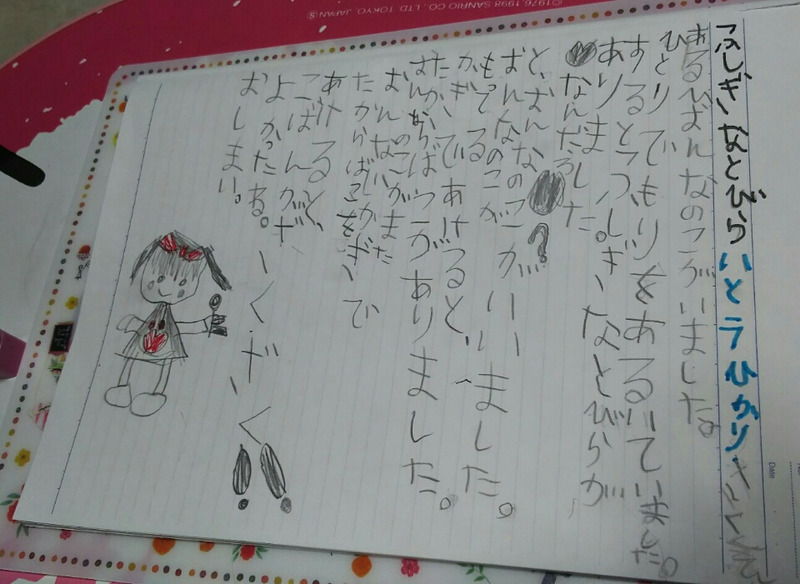 ©1976,1998 SANRIO CO., LTD. TOKYO, JAPAN
Date
ふしぎなとびら いとうひかり
あるひおんなのこがいました。
ひとりでもりをあるいていました。
するとふしぎなとびらが
ありました。
なんだろ
と、おんな?
おんなのこがいいました。
もってる
かぎであけると、
たからばこがありました。
おんなのこがまた
たからばこをかぎーで
あけると、
こばんがざーくざーく!!
よかったね。
おしまい。